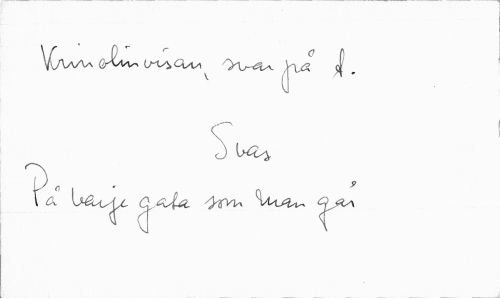 Krinolinvisan, svar på d.
Svar
På varje gata som man går